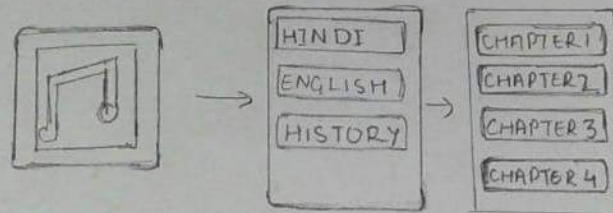 HINDI
ENGLISH
HISTORY
CHAPTER 1
CHAPTER 2
CHAPTER 3
CHAPTER 4